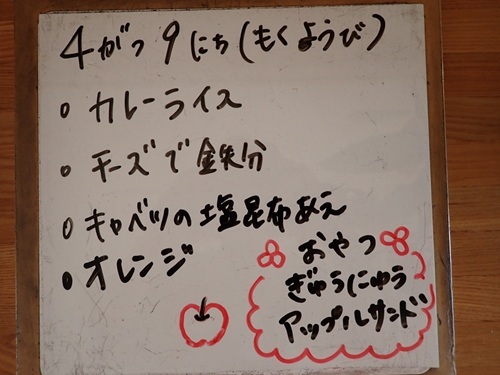 4がつ9にち(もくようび)
• カレーライス
• チーズで鉄分
• キャベツの塩昆布あえ
• オレンジ
おやつ
ぎゅうにゅう
アップルサンド